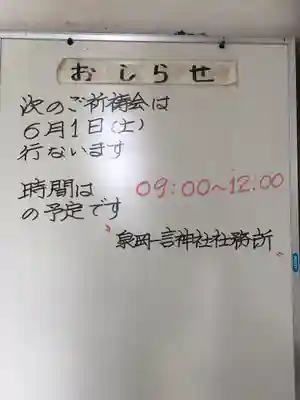 おしらせ
次のご祈祷会は
6月1日(土)
行ないます
時間は 09:00~12:00
の予定です
泉岡一言神社社務所